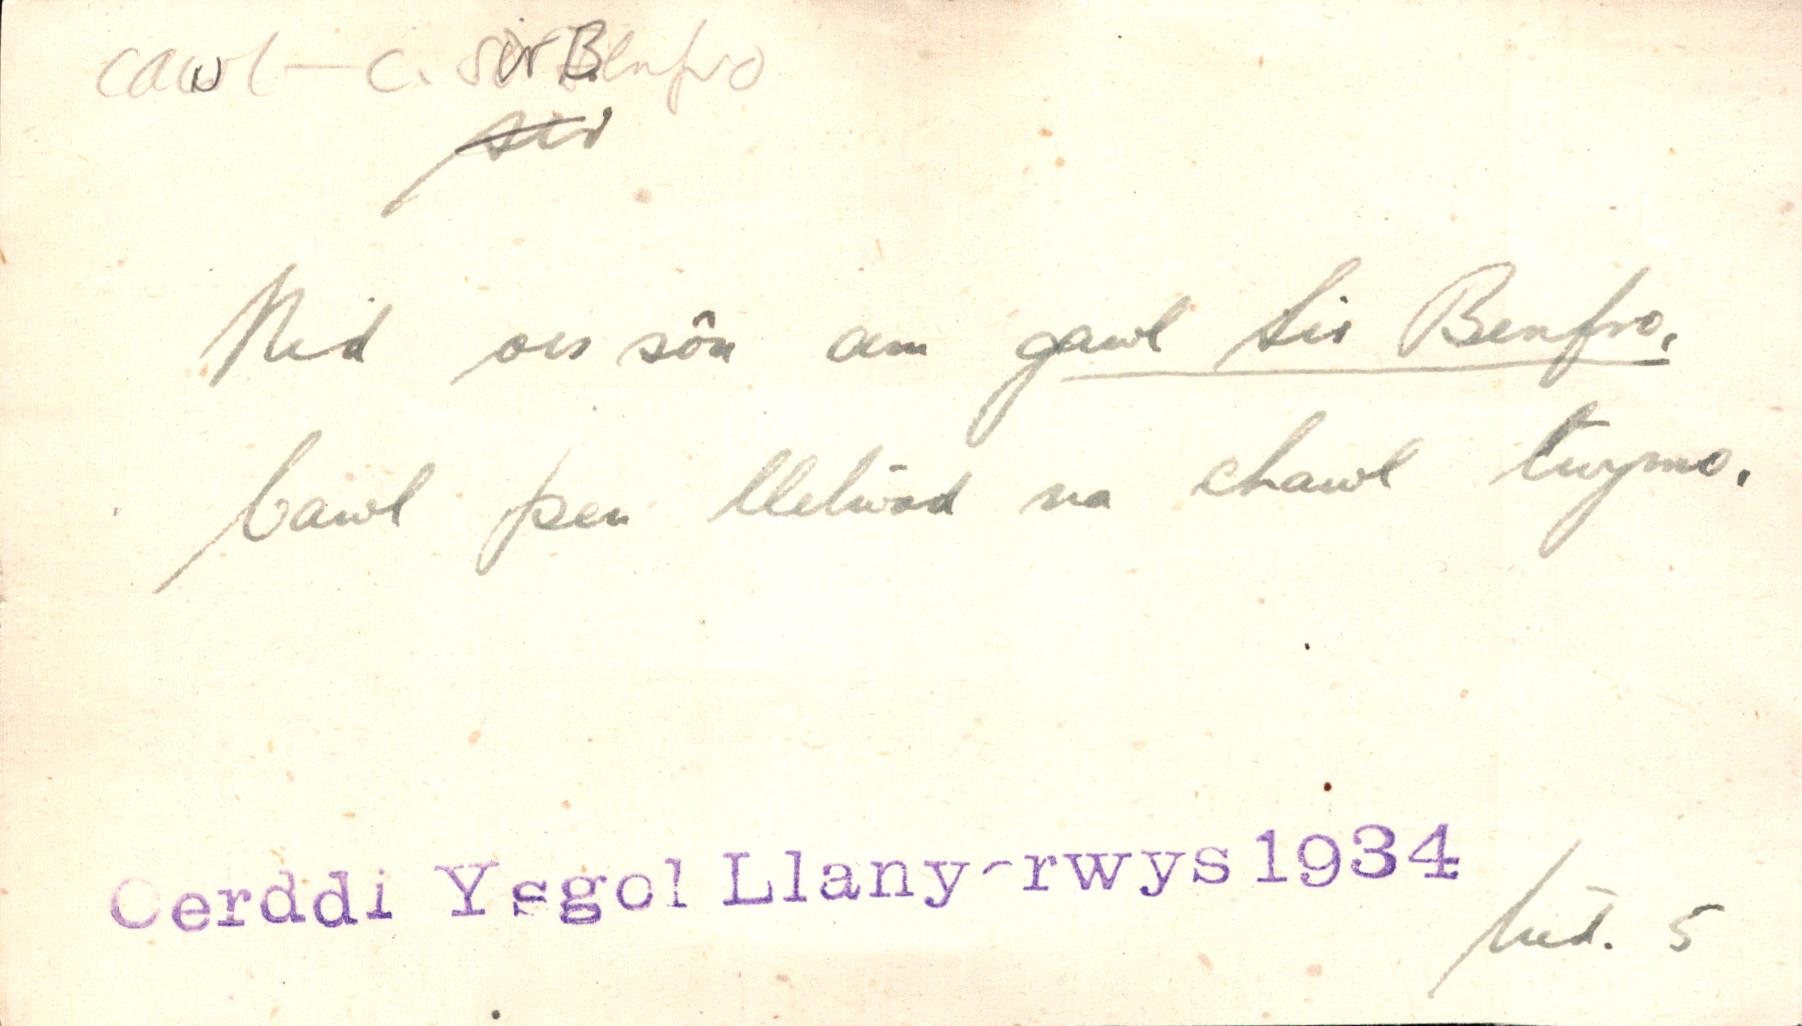 cawl — c. sir Benfro
sir
Nid oes sôn am gawl Sir Benfro,
Cawl pen lletwad na chawl twymo.
Cerddi Ysgol Llany-rwys 1934
tud. 5